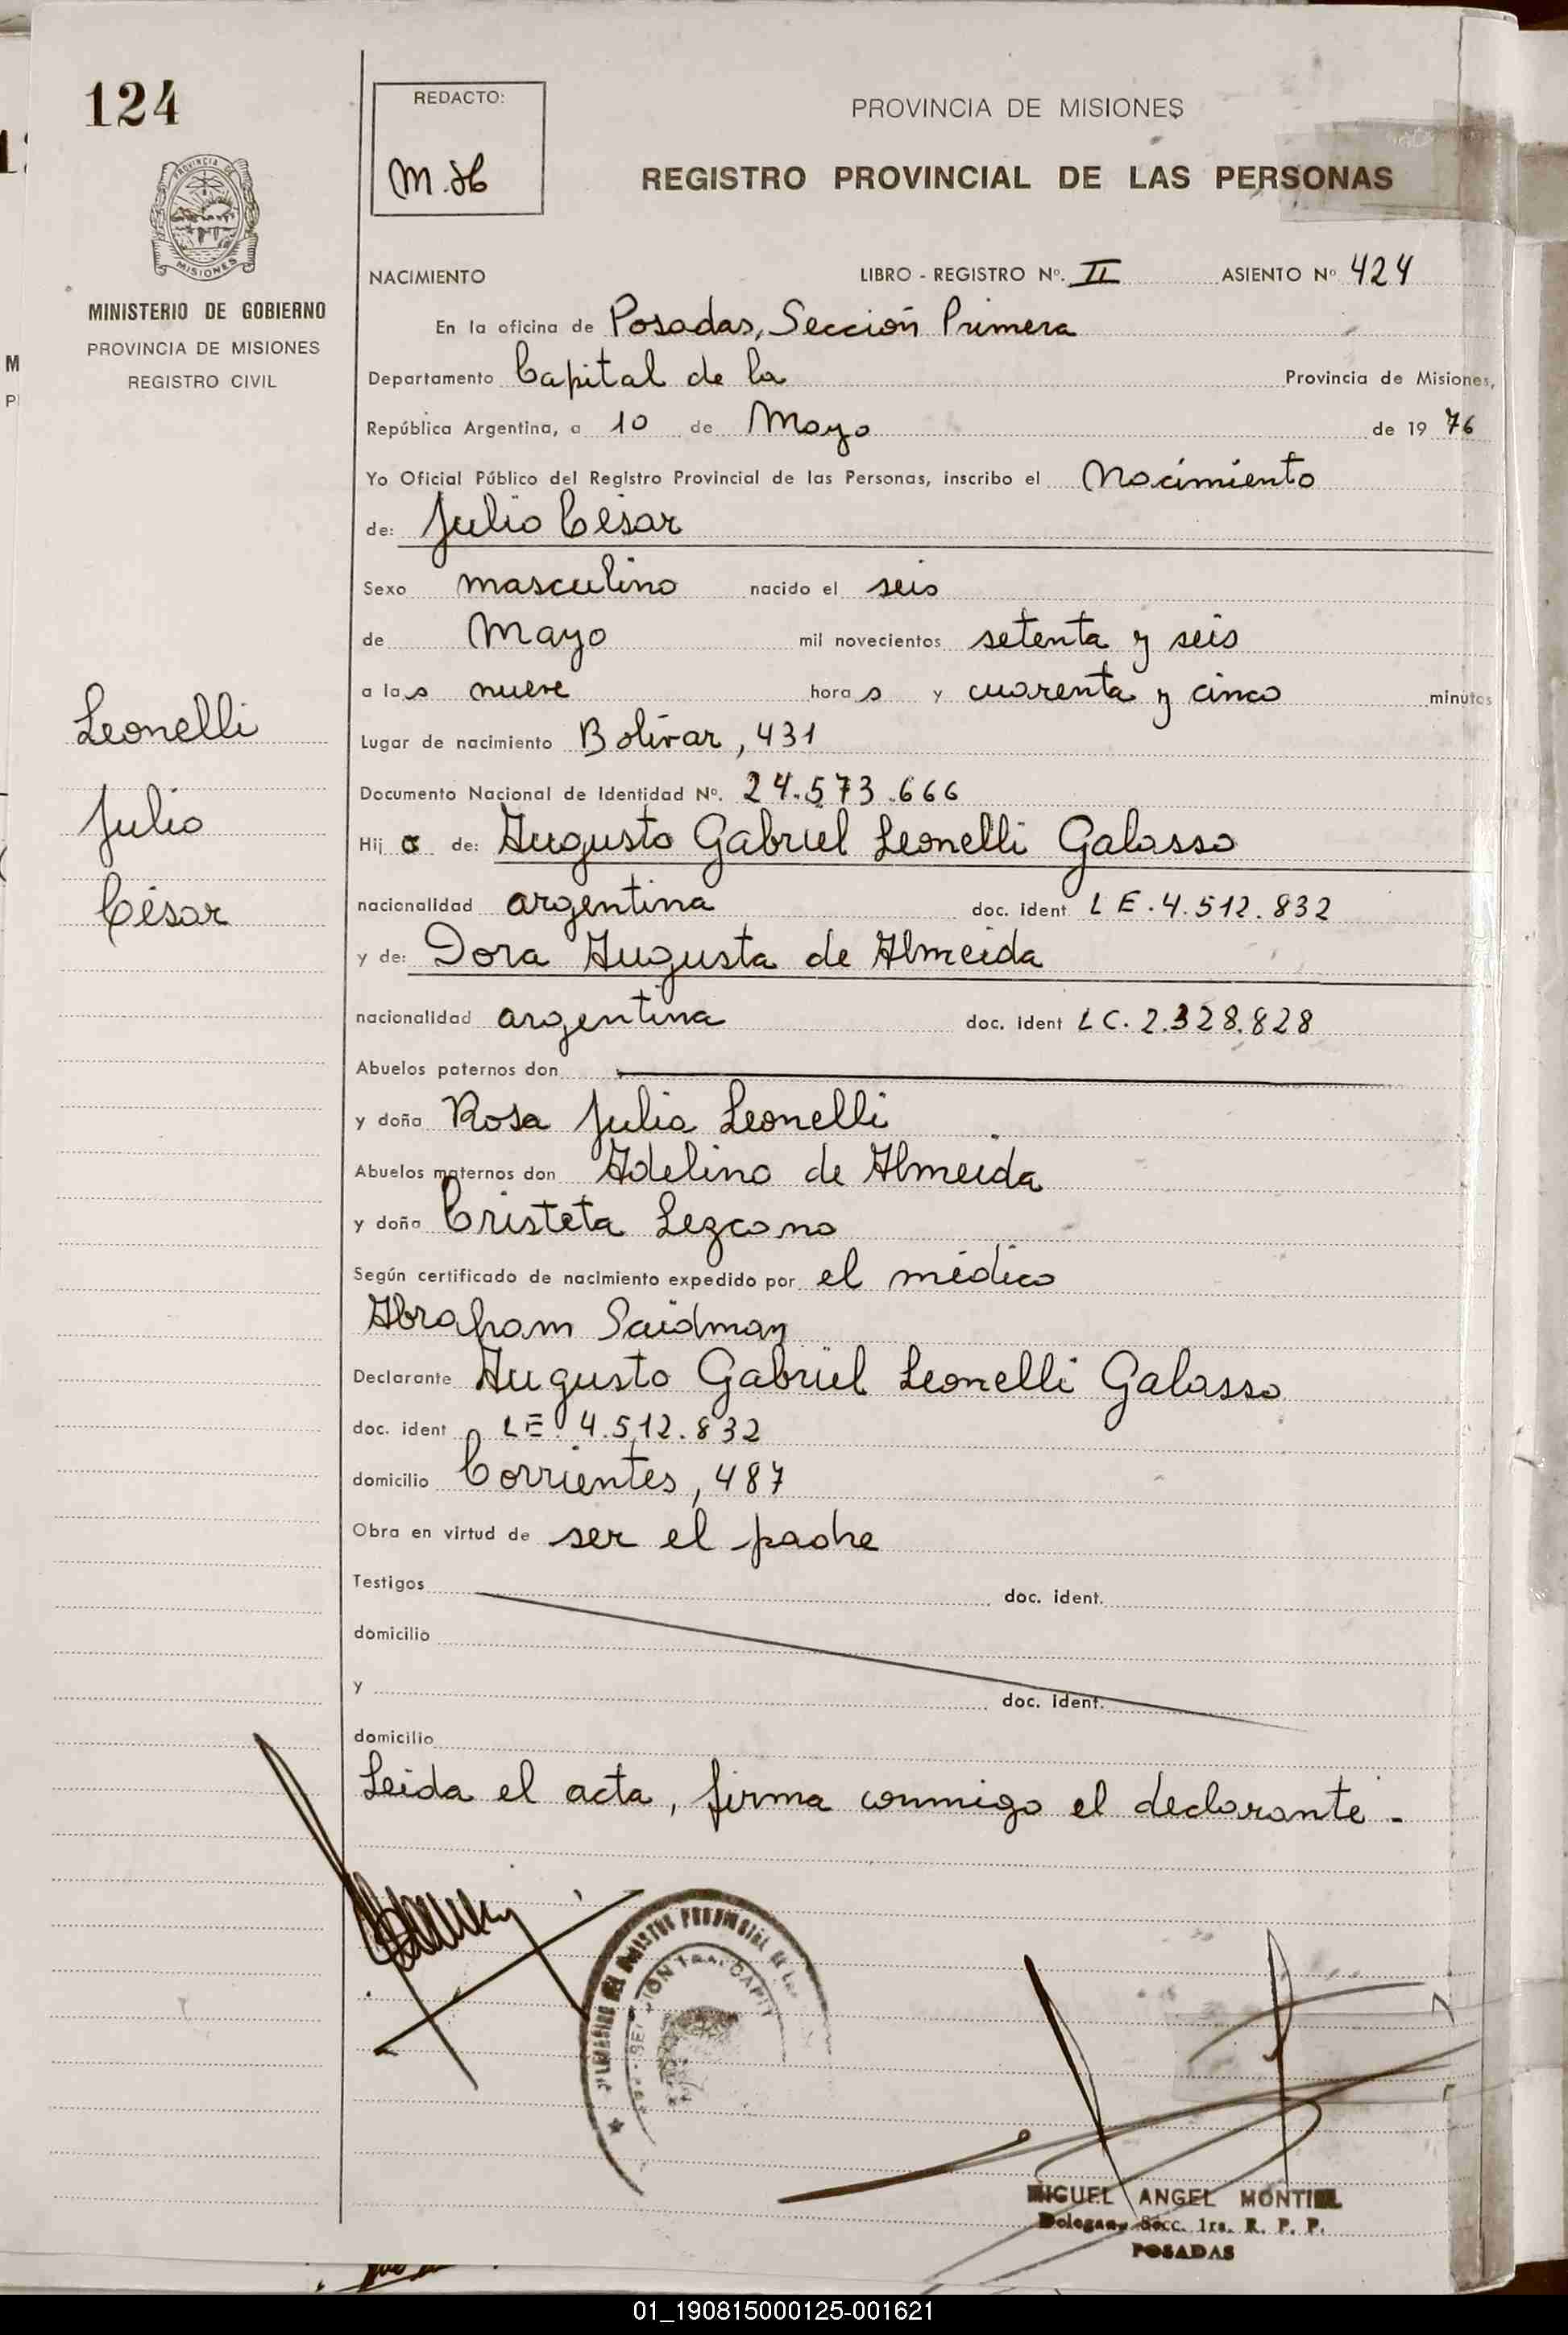 124
PROVINCIA DE
MISIONES
MINISTERIO DE GOBIERNO
PROVINCIA DE MISIONES
REGISTRO CIVIL
Leonelli
Julio
César
REDACTO:
PROVINCIA DE MISIONES
REGISTRO PROVINCIAL DE LAS PERSONAS
NACIMIENTO LIBRO - REGISTRO Nº. II ASIENTO Nº 424
En la oficina de Posadas, Sección Primera
Departamento Capital de la Provincia de Misiones,
República Argentina, a 10 de Mayo de 19 76
Yo Oficial Público del Registro Provincial de las Personas, inscribo el Nacimiento
de: Julio César
Sexo masculino nacido el seis
de Mayo mil novecientos setenta y seis
a las nueve horas y cuarenta y cinco minutos
Lugar de nacimiento Bolívar, 431
Documento Nacional de Identidad Nº. 24.573.666
Hijo de: Augusto Gabriel Leonelli Galasso
nacionalidad argentina doc. ident LE.4.512.832
y de: Dora Augusta de Almeida
nacionalidad argentina doc. ident LC.2.328.828
Abuelos paternos don
y doña Rosa Julia Leonelli
Abuelos maternos don Adelino de Almeida
y doña Cristeta Lezcano
Según certificado de nacimiento expedido por el médico
Abraham Saidman
Declarante Augusto Gabriel Leonelli Galasso
doc. ident LE. 4.512.832
domicilio Corrientes, 487
Obra en virtud de ser el padre
Testigos doc. ident.
domicilio
y doc. ident.
domicilio
Leida el acta, firma conmigo el declarante.-
MIGUEL ANGEL MONTIEL
Secc. 1ra. R. P. P.
POSADAS
01_190815000125-001621